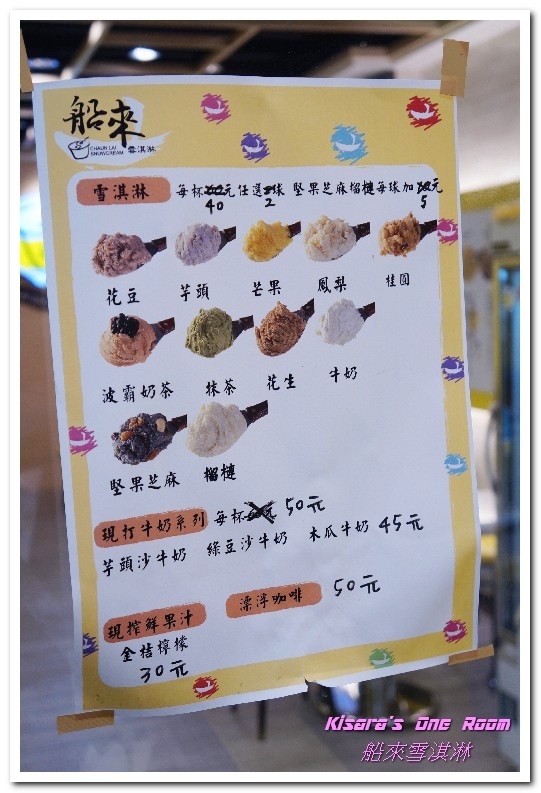 船來
CHAUN LAI
SNOWCREAM 雪淇淋
雪淇淋 每杯元任選球 堅果芝麻榴槤每球加元
40 2 5
花豆 芋頭 芒果 鳳梨 桂圓
波霸奶茶 抹茶 花生 牛奶
堅果芝麻 榴槤
現打牛奶系列 每杯 50元
芋頭沙牛奶 綠豆沙牛奶 木瓜牛奶 45元
現榨鮮果汁 漂浮咖啡 50元
金桔檸檬
30元
Kisara's One Room
船來雪淇淋